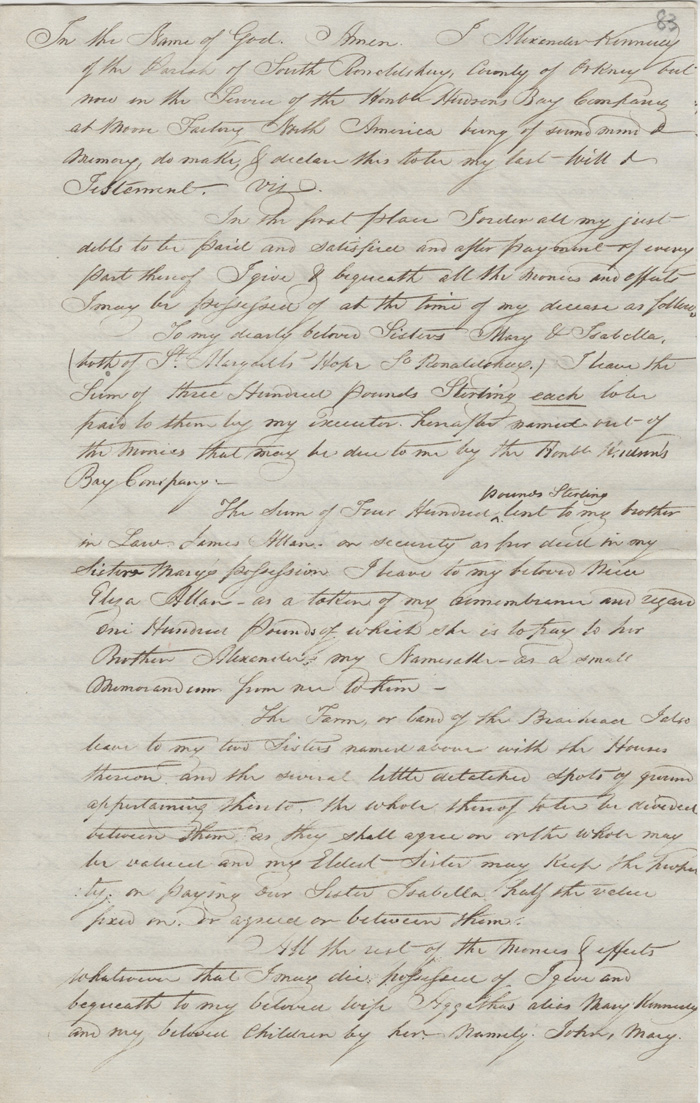 83
In the Name of God. Amen. I Alexander Kennedy
of the Parish of South Ronaldshay, County of Orkney but
now in the Service of the Honble Hudsons Bay Company
at Moose Factory North America being of sound mind &
Memory, do make, & declare this to be my last Will &
Testement. Viz.
In the first place I order all my just
debts to be paid and satisfied and after payment of every
part thereof I give & bequeath all the monies and effects
I may be possessed of at the time of my decease as follows
To my dearly beloved Sisters Mary & Isabella,
(both of St. Margrets Hope So Ronaldshay.) I leave the
Sum of three Hundred pounds Sterling each to be
paid to them by my Executor hereafter named out of
the monies that may be due to me by the Honble Hudson's
Bay Company.
The Sum of Four Hundred pounds Sterling lent to my brother
in Law James Allan. on security as per deed in my
Sisters Marys possession I leave to my beloved Niece
Eliza Allan - as a token of my remembrance and regard
One Hundred Pounds of which she is to pay to her
Brother Alexander, my Namesake - as a small
Memorandum from me to him -
The Farm, or land of the Braehead I also
leave to my two Sisters named above with the Houses
thereon and the several little detatched spots of ground
appertaining thereto. the whole thereof to be divided
between them as they shall agree on or the whole may
be valued and my Eldest Sister may keep the proper
:ty: on paying our Sister Isabella half the value
fixed on. or agreed on between them.
All the rest of the monies & effects
whatsoever that I may die possessed of I give and
bequeath to my beloved wife Aggathas alias Mary Kennedy
and my beloved Children by her. Namely. John, Mary.